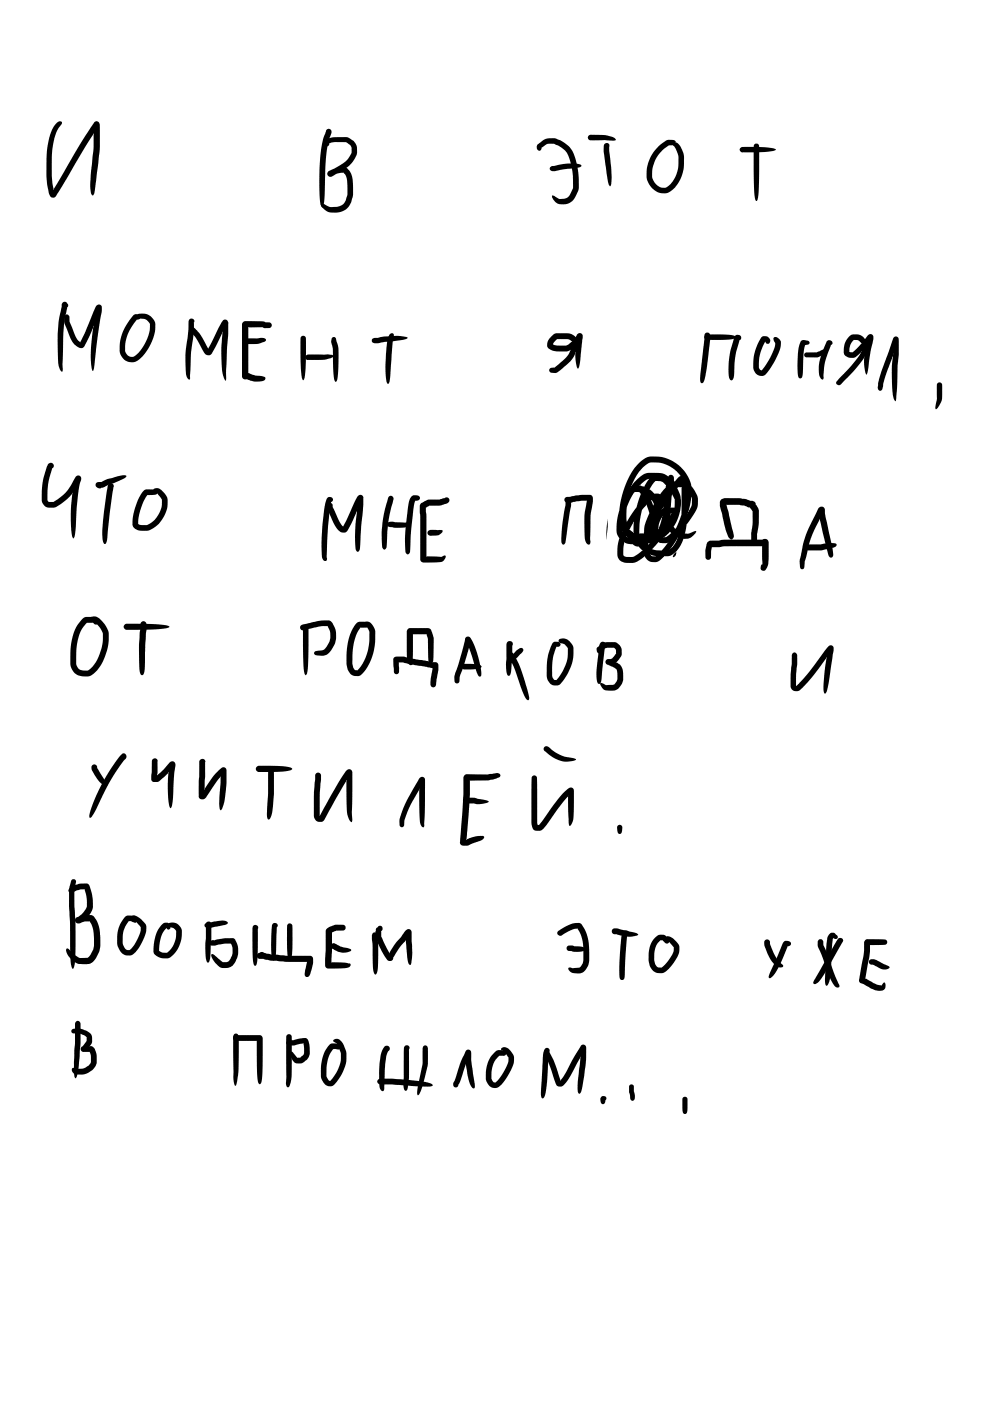 И В ЭТОТ
МОМЕНТ Я ПОНЯЛ,
ЧТО МНЕ
ОТ РОДАКОВ И
УЧИТИЛЕЙ.
ВООБЩЕМ ЭТО УЖЕ
В ПРОШЛОМ...